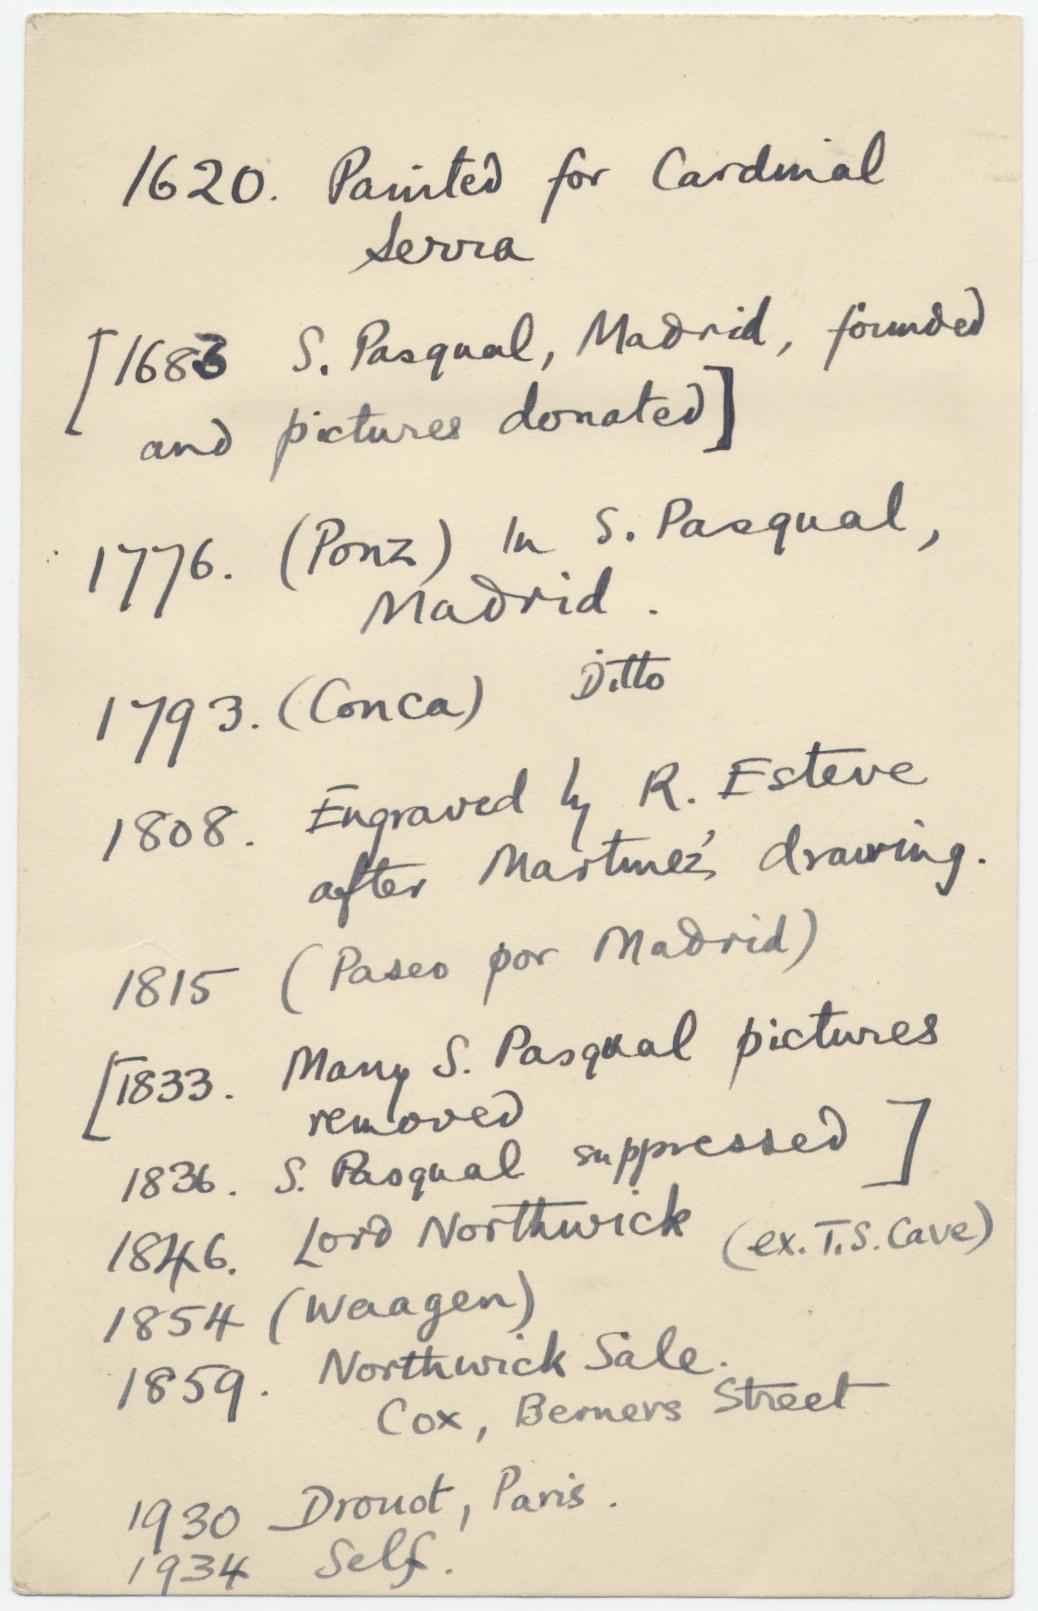 1620. Painted for Cardinal
Serra
[1683 S. Pasqual, Madrid, founded
and pictures donated]
1776. (Ponz) In S. Pasqual,
Madrid.
1793. (Conca) Ditto
1808. Engraved by R. Esteve
after Martinez's drawing.
1815 (Paseo por Madrid)
[1833. Many S. Pasqual pictures
removed
1836. S. Pasqual suppressed]
1846. Lord Northwick (ex. T.S. Cave)
1854 (Waagen)
1859. Northwick Sale.
Cox, Berners Street
1930 Drouot, Paris.
1934 Self.